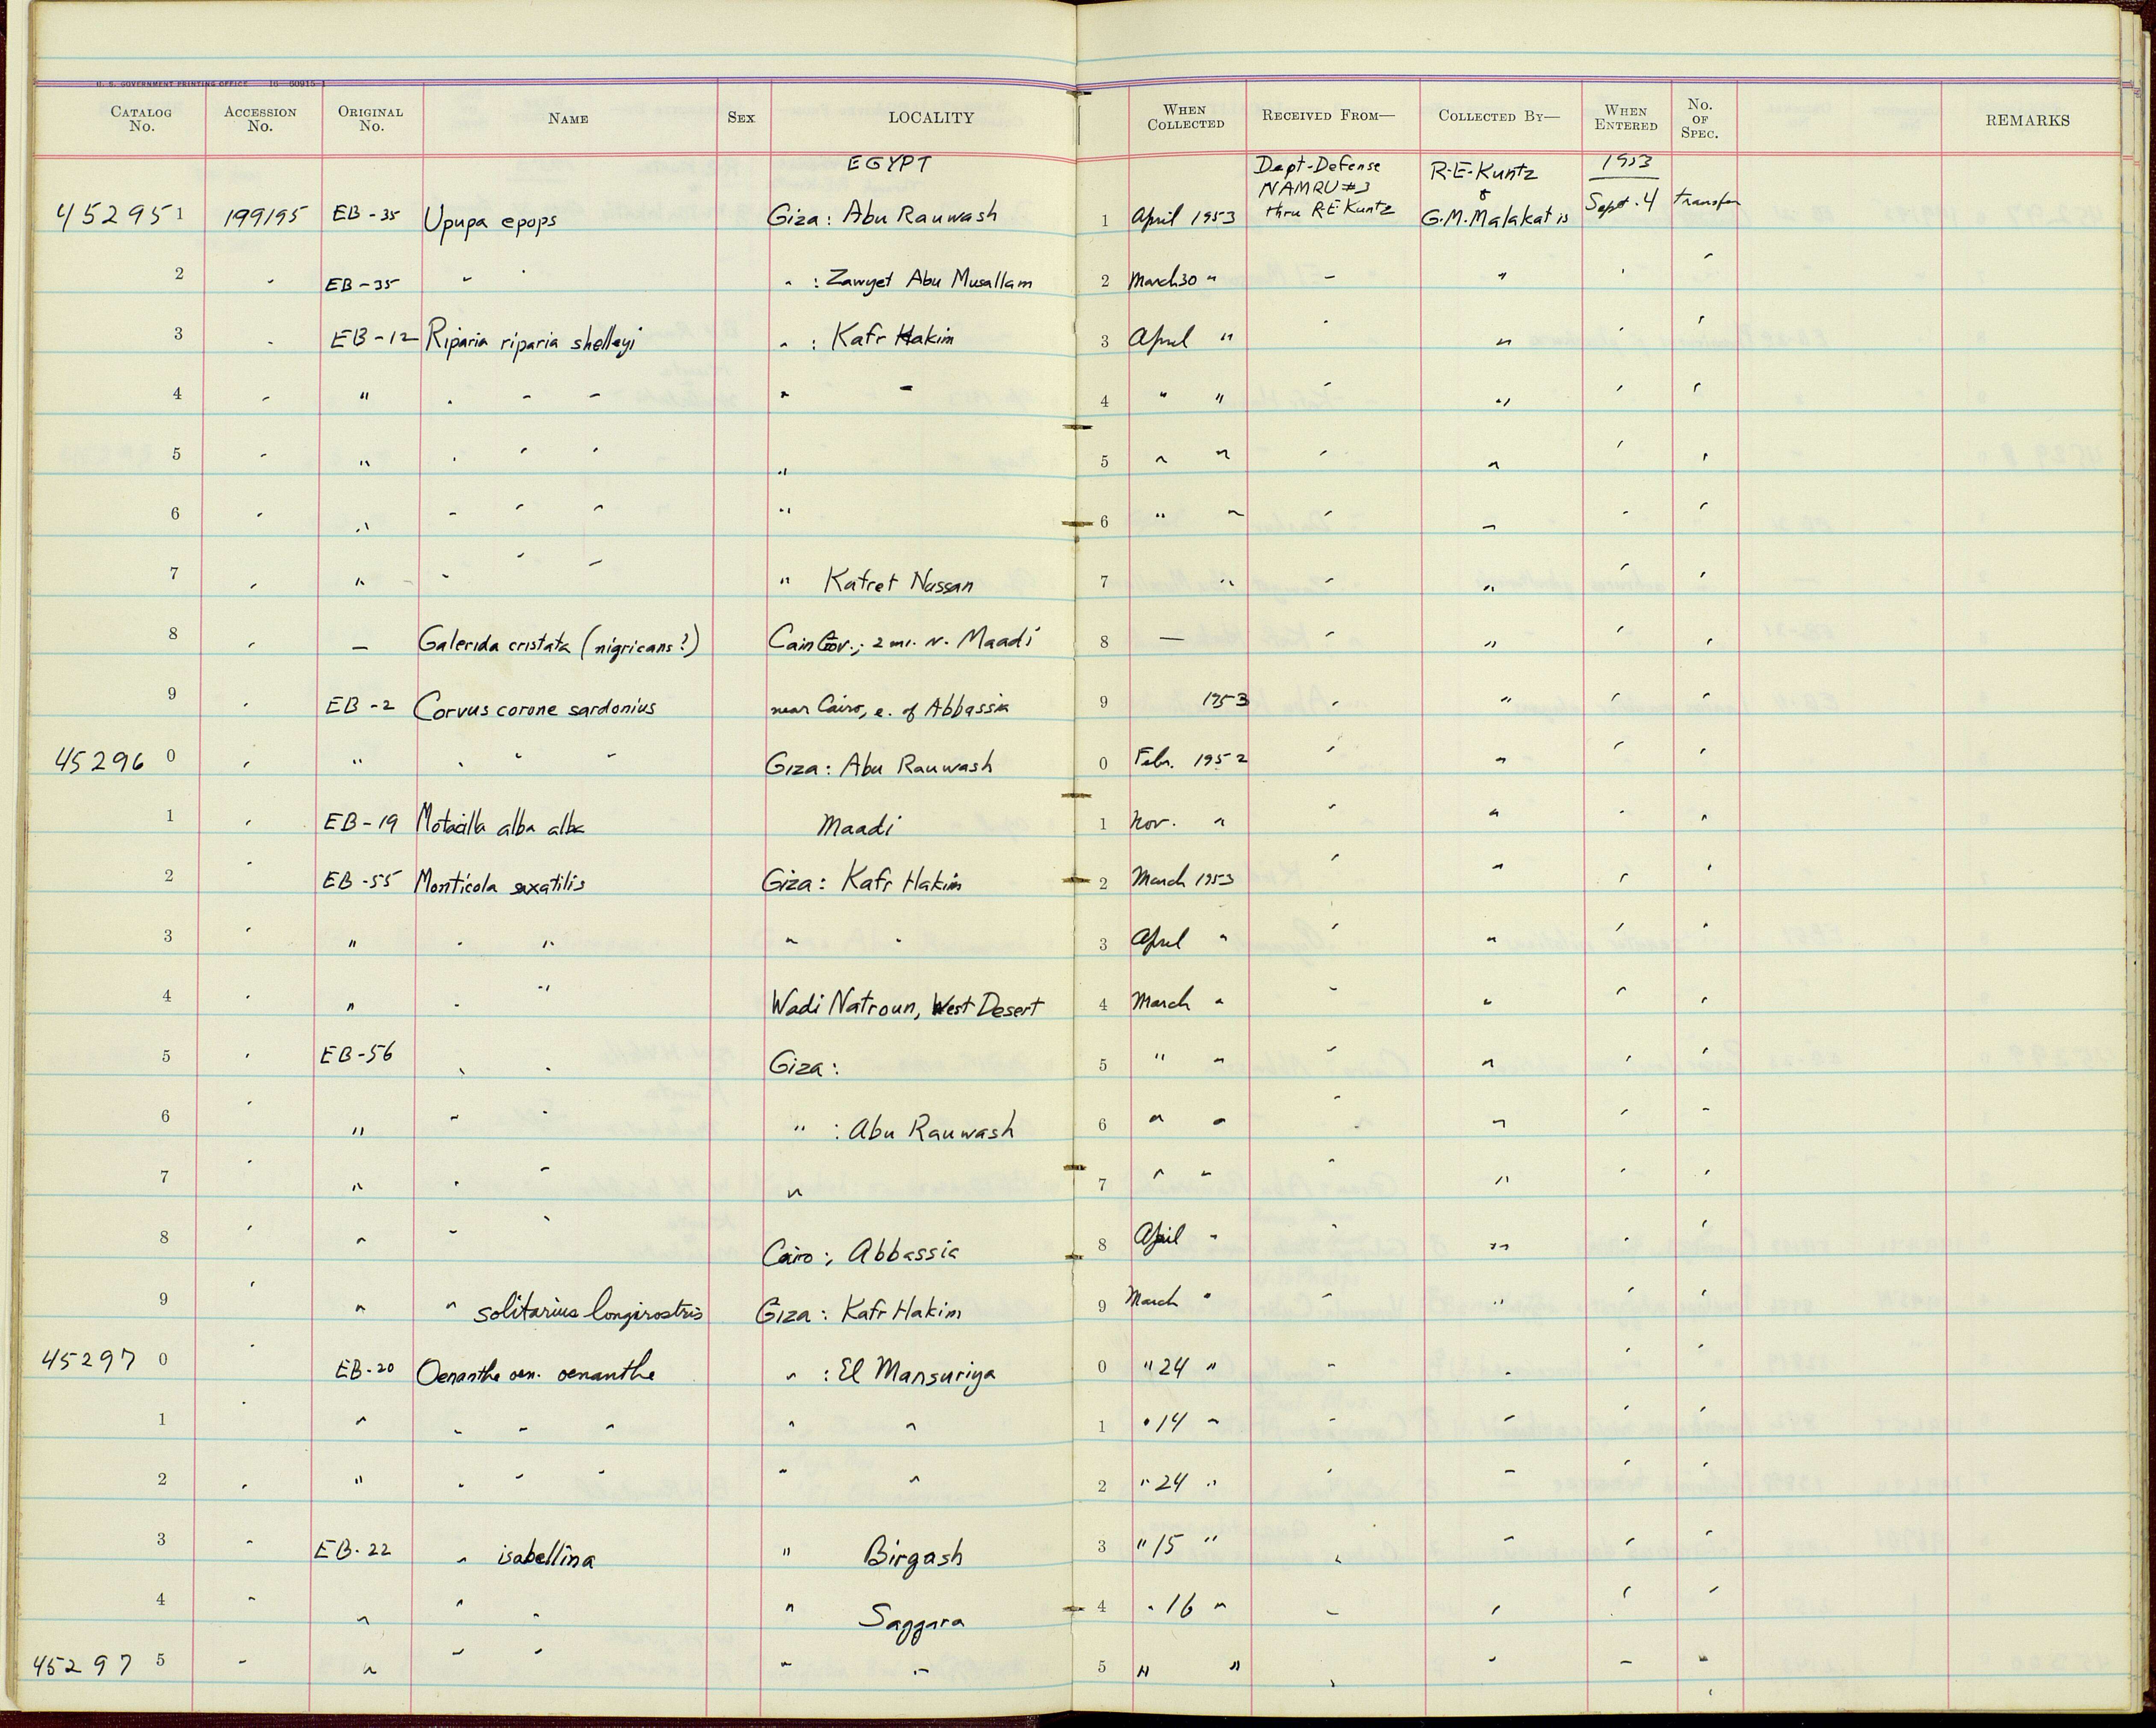 U. S. GOVERNMENT PRINTING OFFICE 16—60915-1
CATALOG No. ACCESSION No. ORIGINAL No. NAME SEX LOCALITY WHEN COLLECTED RECEIVED FROM— COLLECTED BY— WHEN ENTERED No. OF SPEC. REMARKS
EGYPT Dept-Defense NAMRU #3 thru R.E Kuntz R.E.Kuntz & G.M.Malakatis 1953
45295 1 199195 EB-35 Upupa epops Giza: Abu Rauwash 1 April 1953 Sept. 4 transfer
2 " EB-35 " " " : Zawyet Abu Musallam 2 March 30 " " " " "
3 " EB-12 Riparia riparia shelleyi " : Kafr Hakim 3 April " " " " "
4 " " " " " " " 4 " " " " " "
5 " " " " " " 5 " " " " " "
6 " " " " " " 6 " " " " " "
7 " " " " " " Kafret Nassan 7 " " " " "
8 " — Galerida cristata (nigricans?) Cairo Gov.; 2 mi. N. Maadi 8 — " " " "
9 " EB-2 Corvus corone sardonius near Cairo, e. of Abbassia 9 1953 " " " "
45296 0 " " " " " Giza: Abu Rauwash 0 Febr. 1952 " " " "
1 " EB-19 Motacilla alba alba Maadi 1 Nov. " " " " "
2 " EB-55 Monticola saxatilis Giza: Kafr Hakim 2 March 1953 " " " "
3 " " " " " " 3 April " " " " "
4 " " " " Wadi Natroun, West Desert 4 March " " " " "
5 " EB-56 " " Giza: 5 " " " " " "
6 " " " " " : Abu Rauwash 6 " " " " " "
7 " " " " " 7 " " " " " "
8 " " " " Cairo; Abbassia 8 April " " " " "
9 " " " solitarius longirostris Giza: Kafr Hakim 9 March " " " " "
45297 0 " EB-20 Oenanthe oen. oenanthe " : El Mansuriya 0 " 24 " " " " "
1 " " " " " " " 1 " 14 " " " " "
2 " " " " " " " 2 " 24 " " " " "
3 " EB-22 " isabellina " Birgash 3 " 15 " " " " "
4 " " " " " Saggara 4 " 16 " " " " "
45297 5 " " " " " " 5 " " " " " "